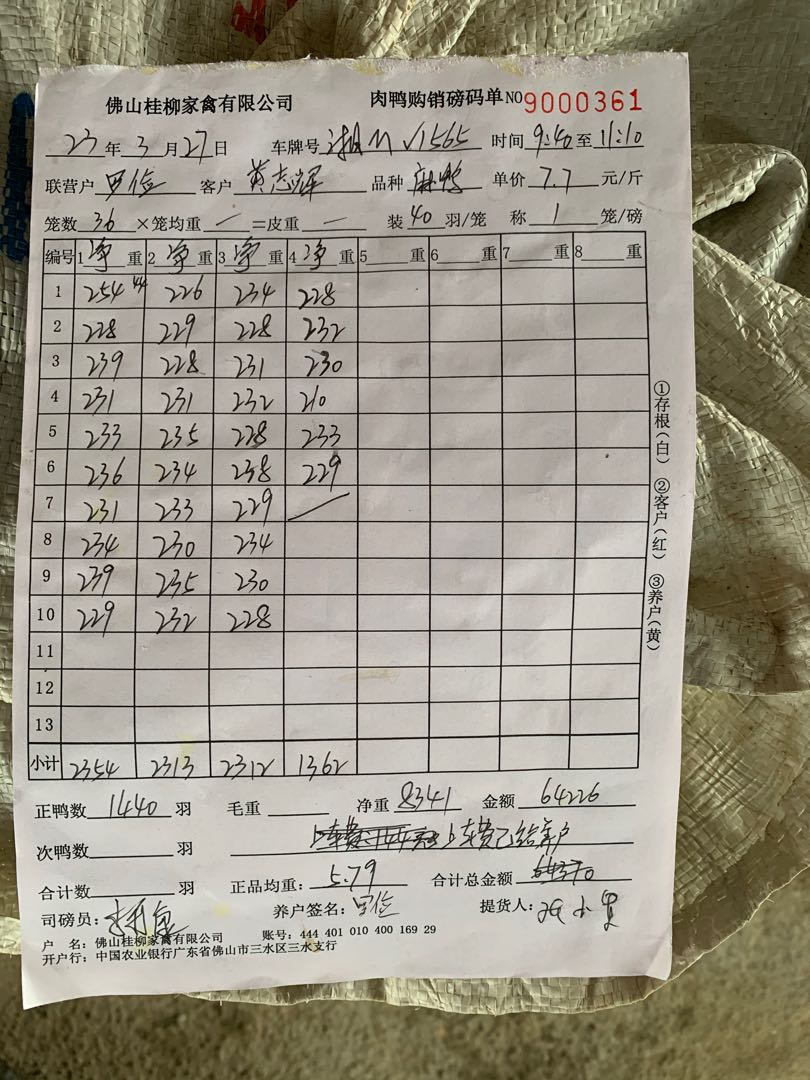 佛山桂柳家禽有限公司 肉鸭购销磅码单 NO 9000361
23 年 3 月 27 日 车牌号 湘M V1565 时间 9:40 至 11:10
联营户 罗俭 客户 黄志辉 品种 麻鸭 单价 7.7 元/斤
笼数 36 ×笼均重 — =皮重 — 装 40 羽/笼 称 1 笼/磅
编号 1 净 重 2 净 重 3 净 重 4 净 重 5 重 6 重 7 重 8 重
1 254 44 226 234 228
2 228 229 228 232
3 239 228 231 230
4 231 231 232 210
5 233 235 228 233
6 236 234 238 229
7 231 233 229 —
8 234 230 234
9 239 235 230
10 229 232 228
11
12
13
小计 2354 2313 2312 1362
正鸭数 1440 羽 毛重 净重 8341 金额 64226
次鸭数 羽 上车费已给养户
合计数 羽 正品均重: 5.79 合计总金额
司磅员: 养户签名: 罗俭 提货人:
户 名: 佛山桂柳家禽有限公司 账号: 444 401 010 400 169 29
开户行: 中国农业银行广东省佛山市三水区三水支行
①存根(白) ②客户(红) ③养户(黄)